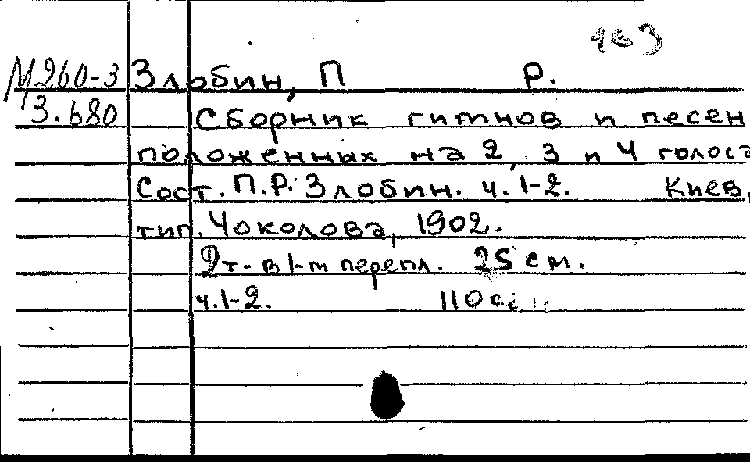 163
М260-3 Злобин, П Р.
13.680 Сборник гимнов и песен
положенных на 2, 3 и 4 голоса
Сост. П.Р. Злобин. ч.1-2. Киев,
тип. Чоколова, 1902.
2т. в 1-м перепл. 25 см.
ч.1-2. 110